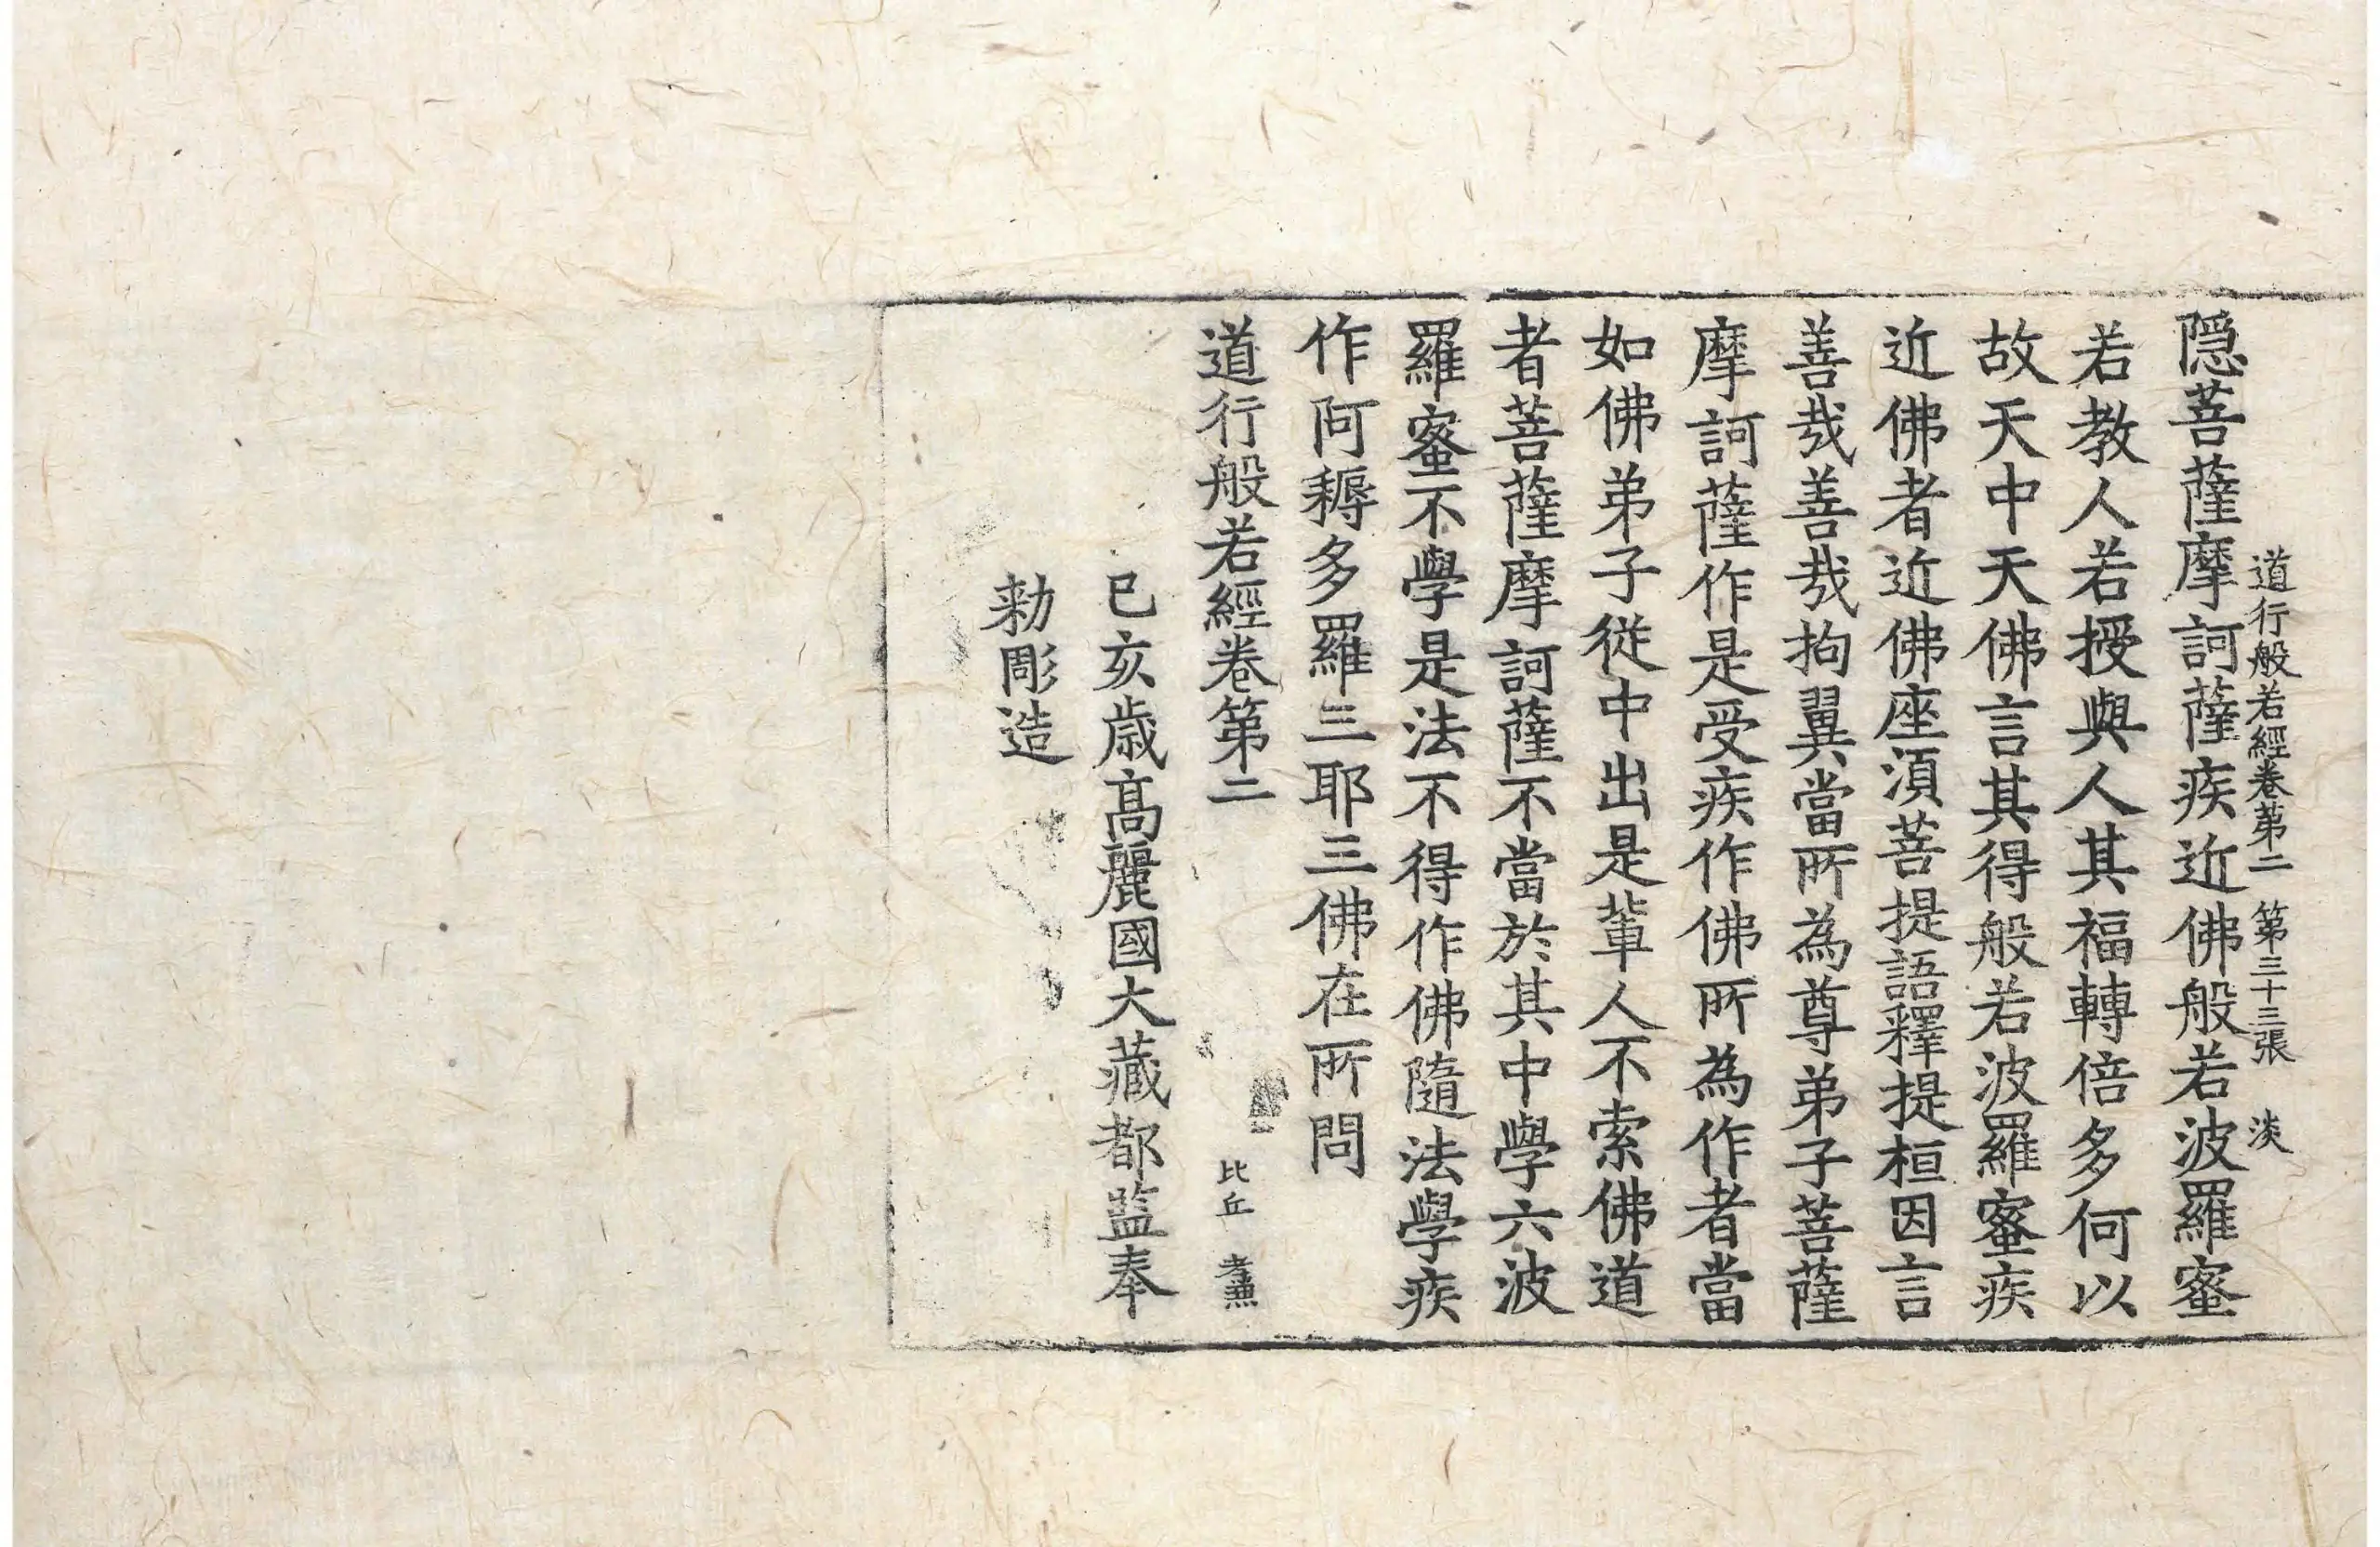 道行般若經卷第二 第三十三張 淡
隱菩薩摩訶薩疾近佛般若波羅蜜
若教人若授與人其福轉倍多何以
故天中天佛言其得般若波羅蜜疾
近佛者近佛座湏菩提語釋提桓因言
善㢤善㢤拘翼當所為尊弟子菩薩
摩訶薩作是受疾作佛所為作者當
如佛弟子從中出是輩人不索佛道
者菩薩摩訶薩不當於其中學六波
羅蜜不學是法不得作佛隨法學疾
作阿耨多羅三耶三佛在所問
道行般若經卷第二
比丘 孝兼
己亥歲高麗國大藏都監奉
勑彫造